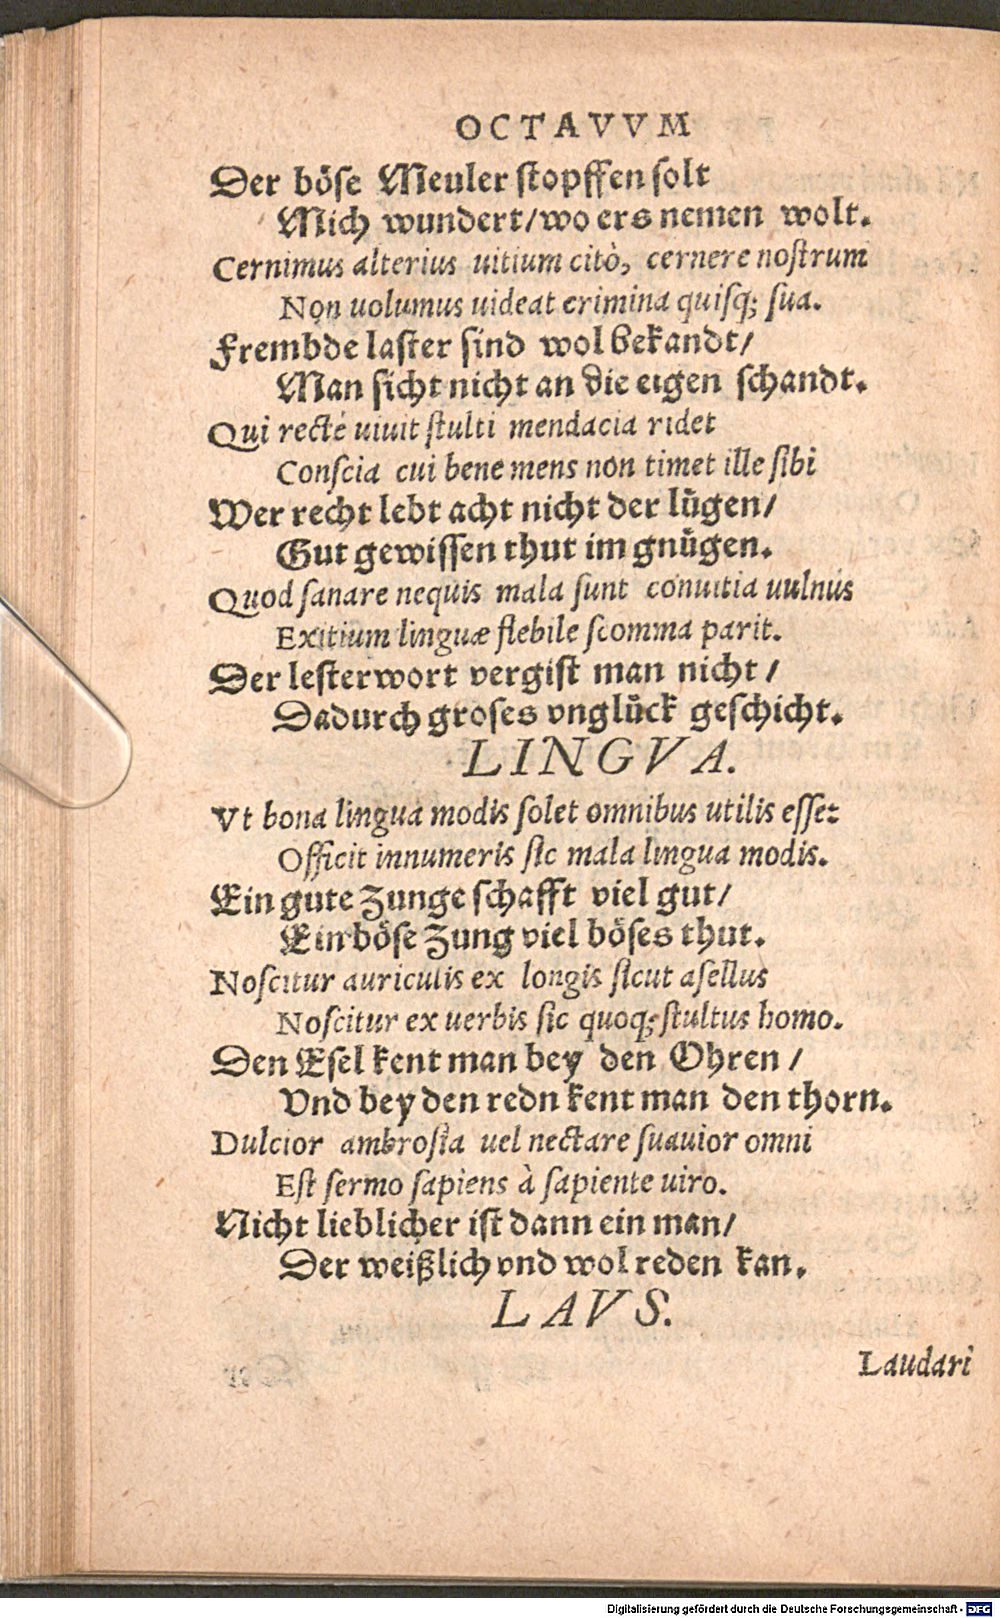 OCTAVVM
Der böse Meuler stopffen solt
Mich wundert/wo ers nemen wolt.
Cernimus alterius uitium citò, cernere nostrum
Non uolumus uideat crimina quisq; sua.
Frembde laster sind wol bekandt/
Man sicht nicht an die eigen schandt.
Qui rectè uiuit stulti mendacia ridet
Conscia cui bene mens non timet ille sibi
Wer recht lebt acht nicht der lügen/
Gut gewissen thut im gnügen.
Quod sanare nequis mala sunt conuitia uulnus
Exitium linguæ flebile scomma parit.
Der lesterwort vergist man nicht/
Dadurch groses vnglück geschicht.
LINGVA.
Vt bona lingua modis solet omnibus utilis esse:
Officit innumeris sic mala lingua modis.
Ein gute Zunge schafft viel gut/
Ein böse Zung viel böses thut.
Noscitur auriculis ex longis sicut asellus
Noscitur ex uerbis sic quoq; stultus homo.
Den Esel kent man bey den Ohren/
Vnd bey den redn kent man den thorn.
Dulcior ambrosia uel nectare suauior omni
Est sermo sapiens à sapiente uiro.
Nicht lieblicher ist dann ein man/
Der weißlich vnd wol reden kan.
LAVS.
Laudari
Digitalisierung gefördert durch die Deutsche Forschungsgemeinschaft - DFG